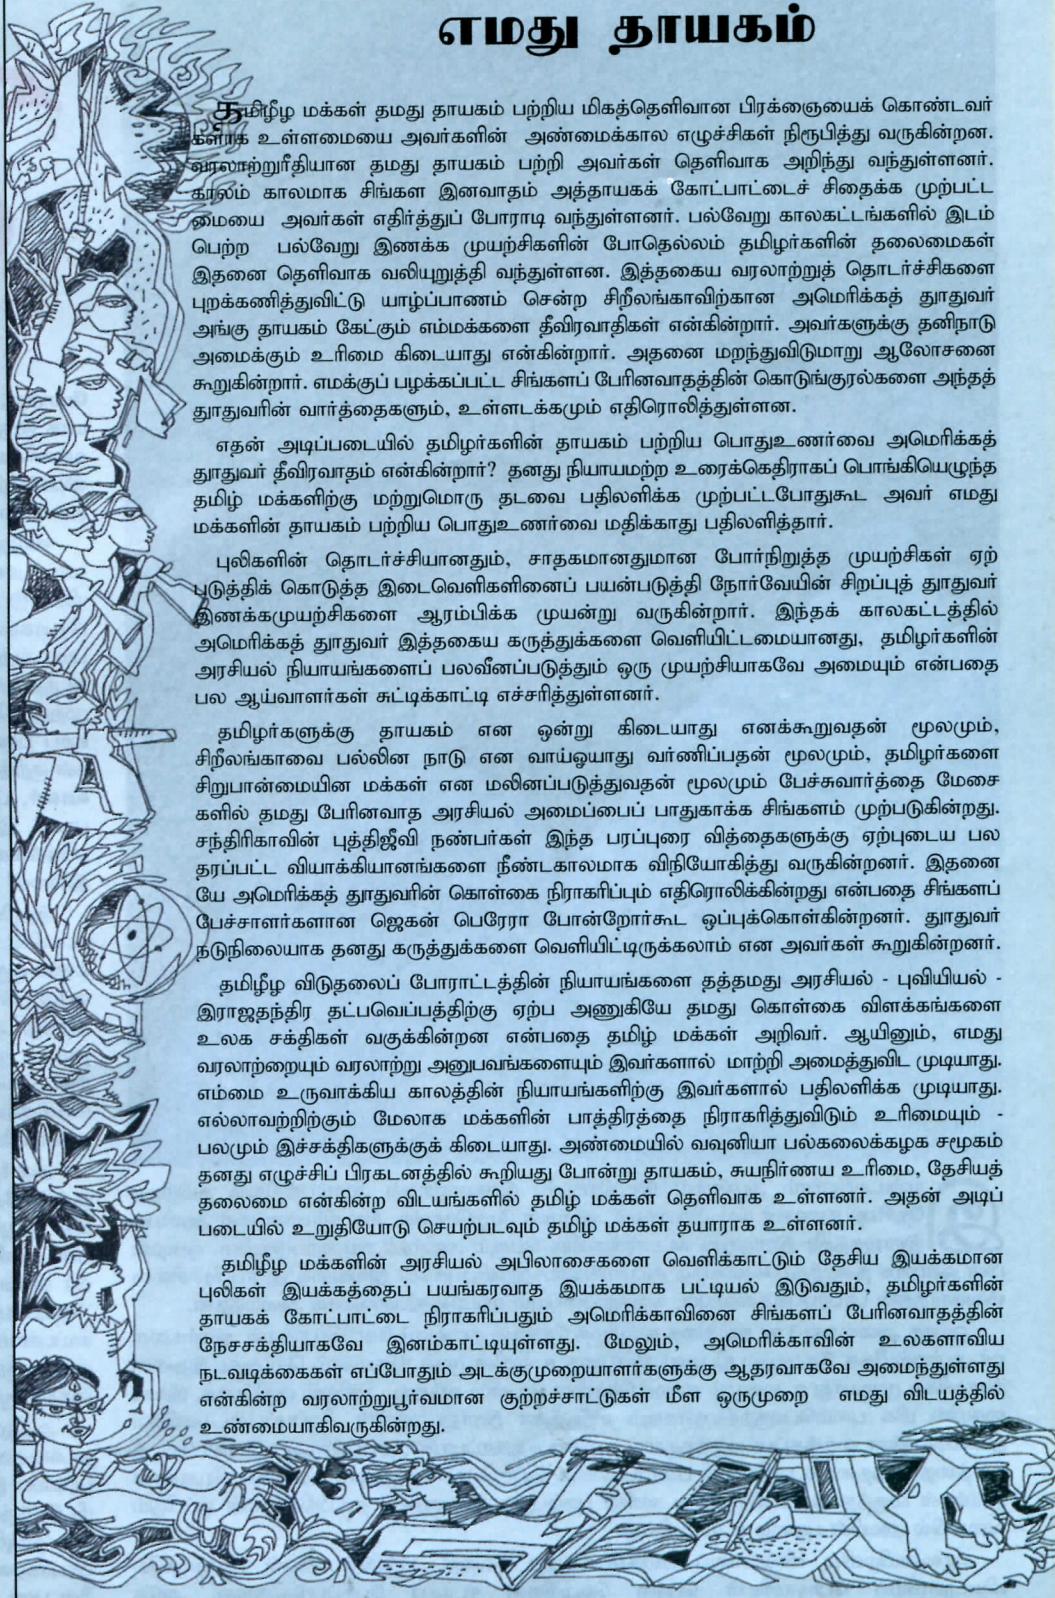 எமது தாயகம்
தமிழீழ மக்கள் தமது தாயகம் பற்றிய மிகத்தெளிவான பிரக்ஞையைக் கொண்டவர்
களாக உள்ளமையை அவர்களின் அண்மைக்கால எழுச்சிகள் நிரூபித்து வருகின்றன.
வரலாற்றுரீதியான தமது தாயகம் பற்றி அவர்கள் தெளிவாக அறிந்து வந்துள்ளனர்.
காலம் காலமாக சிங்கள இனவாதம் அத்தாயகக் கோட்பாட்டைச் சிதைக்க முற்பட்ட
மையை அவர்கள் எதிர்த்துப் போராடி வந்துள்ளனர். பல்வேறு காலகட்டங்களில் இடம்
பெற்ற பல்வேறு இணக்க முயற்சிகளின் போதெல்லம் தமிழர்களின் தலைமைகள்
இதனை தெளிவாக வலியுறுத்தி வந்துள்ளன. இத்தகைய வரலாற்றுத் தொடர்ச்சிகளை
புறக்கணித்துவிட்டு யாழ்ப்பாணம் சென்ற சிறீலங்காவிற்கான அமெரிக்கத் தூதுவர்
அங்கு தாயகம் கேட்கும் எம்மக்களை தீவிரவாதிகள் என்கின்றார். அவர்களுக்கு தனிநாடு
அமைக்கும் உரிமை கிடையாது என்கின்றார். அதனை மறந்துவிடுமாறு ஆலோசனை
கூறுகின்றார். எமக்குப் பழக்கப்பட்ட சிங்களப் பேரினவாதத்தின் கொடுங்குரல்களை அந்தத்
தூதுவரின் வார்த்தைகளும், உள்ளடக்கமும் எதிரொலித்துள்ளன.
எதன் அடிப்படையில் தமிழர்களின் தாயகம் பற்றிய பொதுஉணர்வை அமெரிக்கத்
தூதுவர் தீவிரவாதம் என்கின்றார்? தனது நியாயமற்ற உரைக்கெதிராகப் பொங்கியெழுந்த
தமிழ் மக்களிற்கு மற்றுமொரு தடவை பதிலளிக்க முற்பட்டபோதுகூட அவர் எமது
மக்களின் தாயகம் பற்றிய பொதுஉணர்வை மதிக்காது பதிலளித்தார்.
புலிகளின் தொடர்ச்சியானதும், சாதகமானதுமான போர்நிறுத்த முயற்சிகள் ஏற்
படுத்திக் கொடுத்த இடைவெளிகளினைப் பயன்படுத்தி நோர்வேயின் சிறப்புத் தூதுவர்
இணக்கமுயற்சிகளை ஆரம்பிக்க முயன்று வருகின்றார். இந்தக் காலகட்டத்தில்
அமெரிக்கத் தூதுவர் இத்தகைய கருத்துக்களை வெளியிட்டமையானது, தமிழர்களின்
அரசியல் நியாயங்களைப் பலவீனப்படுத்தும் ஒரு முயற்சியாகவே அமையும் என்பதை
பல ஆய்வாளர்கள் சுட்டிக்காட்டி எச்சரித்துள்ளனர்.
தமிழர்களுக்கு தாயகம் என ஒன்று கிடையாது எனக்கூறுவதன் மூலமும்,
சிறீலங்காவை பல்லின நாடு என வாய்ஓயாது வர்ணிப்பதன் மூலமும், தமிழர்களை
சிறுபான்மையின மக்கள் என மலினப்படுத்துவதன் மூலமும் பேச்சுவார்த்தை மேசை
களில் தமது பேரினவாத அரசியல் அமைப்பைப் பாதுகாக்க சிங்களம் முற்படுகின்றது.
சந்திரிகாவின் புத்திஜீவி நண்பர்கள் இந்த பரப்புரை வித்தைகளுக்கு ஏற்புடைய பல
தரப்பட்ட வியாக்கியானங்களை நீண்டகாலமாக விநியோகித்து வருகின்றனர். இதனை
யே அமெரிக்கத் தூதுவரின் கொள்கை நிராகரிப்பும் எதிரொலிக்கின்றது என்பதை சிங்களப்
பேச்சாளர்களான ஜெகன் பெரேரா போன்றோர்கூட ஒப்புக்கொள்கின்றனர். தூதுவர்
நடுநிலையாக தனது கருத்துக்களை வெளியிட்டிருக்கலாம் என அவர்கள் கூறுகின்றனர்.
தமிழீழ விடுதலைப் போராட்டத்தின் நியாயங்களை தத்தமது அரசியல் - புவியியல் -
இராஜதந்திர தட்பவெப்பத்திற்கு ஏற்ப அணுகியே தமது கொள்கை விளக்கங்களை
உலக சக்திகள் வகுக்கின்றன என்பதை தமிழ் மக்கள் அறிவர். ஆயினும், எமது
வரலாற்றையும் வரலாற்று அனுபவங்களையும் இவர்களால் மாற்றி அமைத்துவிட முடியாது.
எம்மை உருவாக்கிய காலத்தின் நியாயங்களிற்கு இவர்களால் பதிலளிக்க முடியாது.
எல்லாவற்றிற்கும் மேலாக மக்களின் பாத்திரத்தை நிராகரித்துவிடும் உரிமையும் -
பலமும் இச்சக்திகளுக்குக் கிடையாது. அண்மையில் வவுனியா பல்கலைக்கழக சமூகம்
தனது எழுச்சிப் பிரகடனத்தில் கூறியது போன்று தாயகம், சுயநிர்ணய உரிமை, தேசியத்
தலைமை என்கின்ற விடயங்களில் தமிழ் மக்கள் தெளிவாக உள்ளனர். அதன் அடிப்
படையில் உறுதியோடு செயற்படவும் தமிழ் மக்கள் தயாராக உள்ளனர்.
தமிழீழ மக்களின் அரசியல் அபிலாசைகளை வெளிக்காட்டும் தேசிய இயக்கமான
புலிகள் இயக்கத்தைப் பயங்கரவாத இயக்கமாக பட்டியல் இடுவதும், தமிழர்களின்
தாயகக் கோட்பாட்டை நிராகரிப்பதும் அமெரிக்காவினை சிங்களப் பேரினவாதத்தின்
நேசசக்தியாகவே இனம்காட்டியுள்ளது. மேலும், அமெரிக்காவின் உலகளாவிய
நடவடிக்கைகள் எப்போதும் அடக்குமுறையாளர்களுக்கு ஆதரவாகவே அமைந்துள்ளது
என்கின்ற வரலாற்றுபூர்வமான குற்றச்சாட்டுகள் மீள ஒருமுறை எமது விடயத்தில்
உண்மையாகிவருகின்றது.